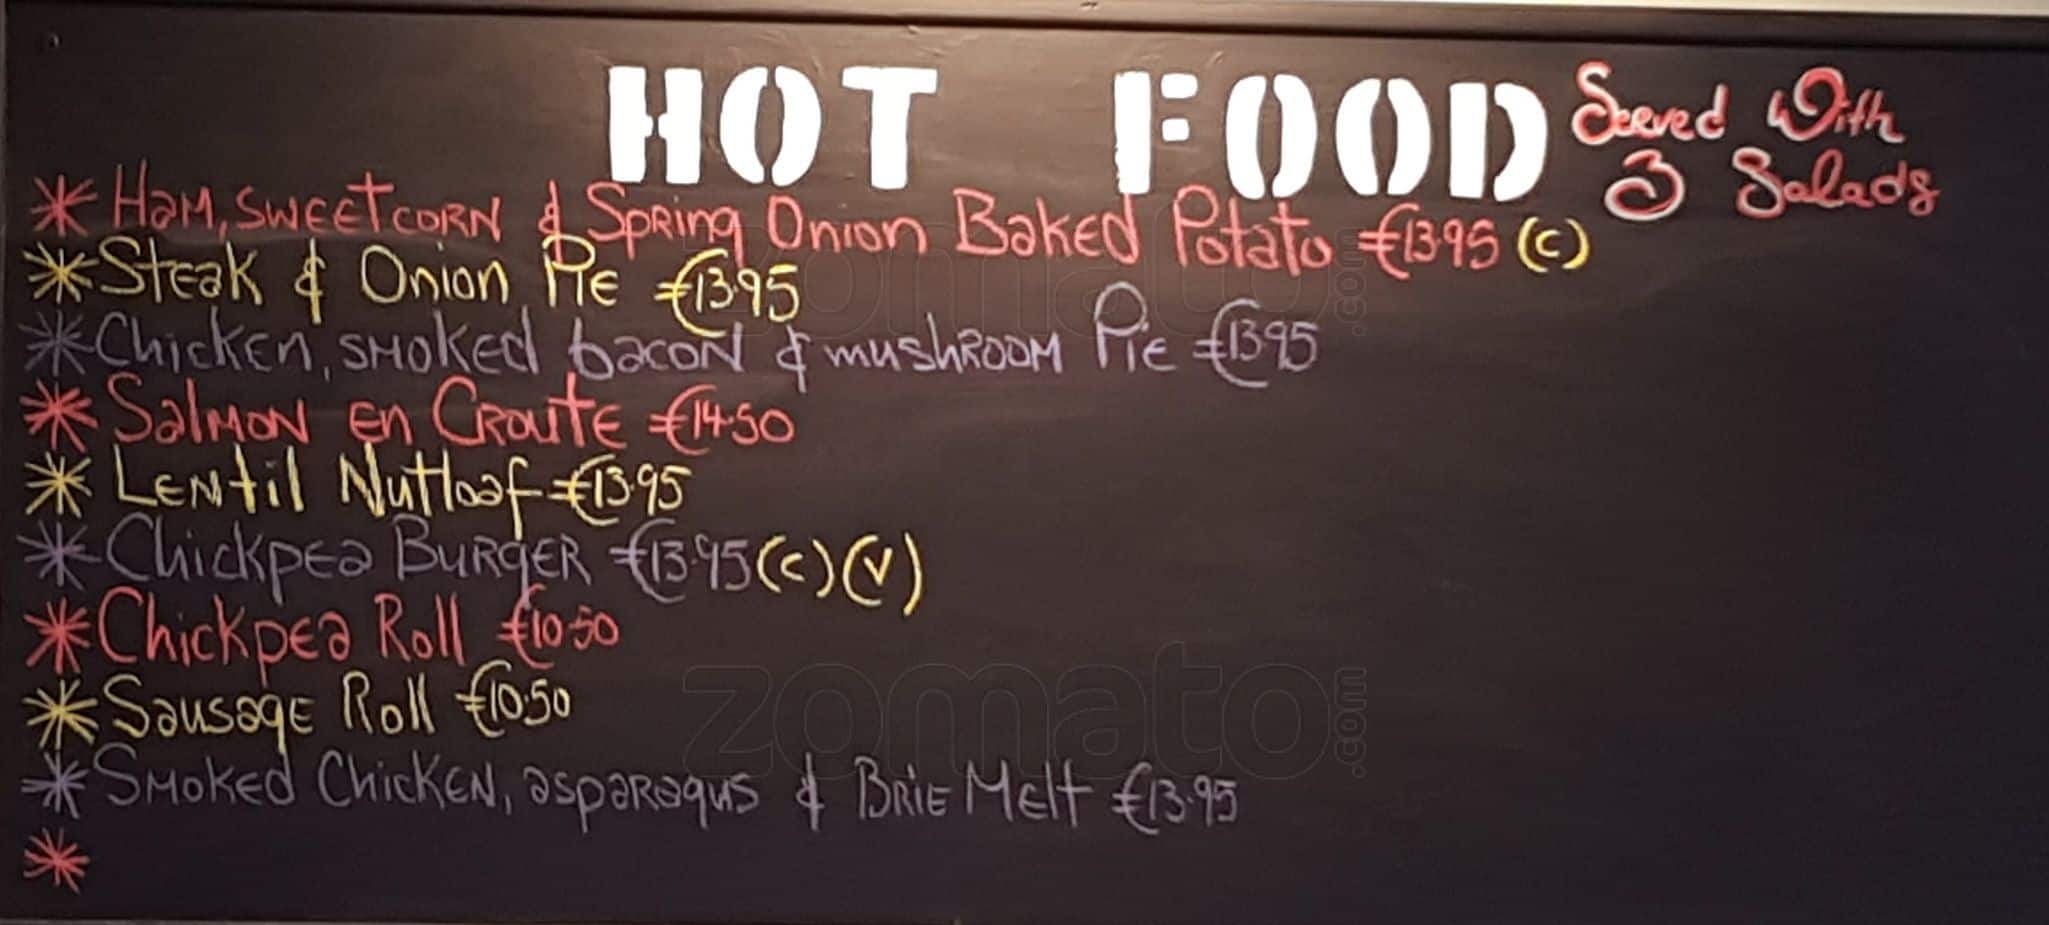 HOT FOOD Served With
3 Salads
* Ham, Sweetcorn & Spring Onion Baked Potato €13.95 (C)
* Steak & Onion Pie €13.95
* Chicken, smoked bacon & mushroom Pie €13.95
* Salmon en Croute €14.50
* Lentil Nutloaf €13.95
* Chickpea Burger €13.95 (C) (V)
* Chickpea Roll €10.50
* Sausage Roll €10.50
* Smoked Chicken, asparagus & Brie Melt €13.95
*
zomato.com
zomato.com